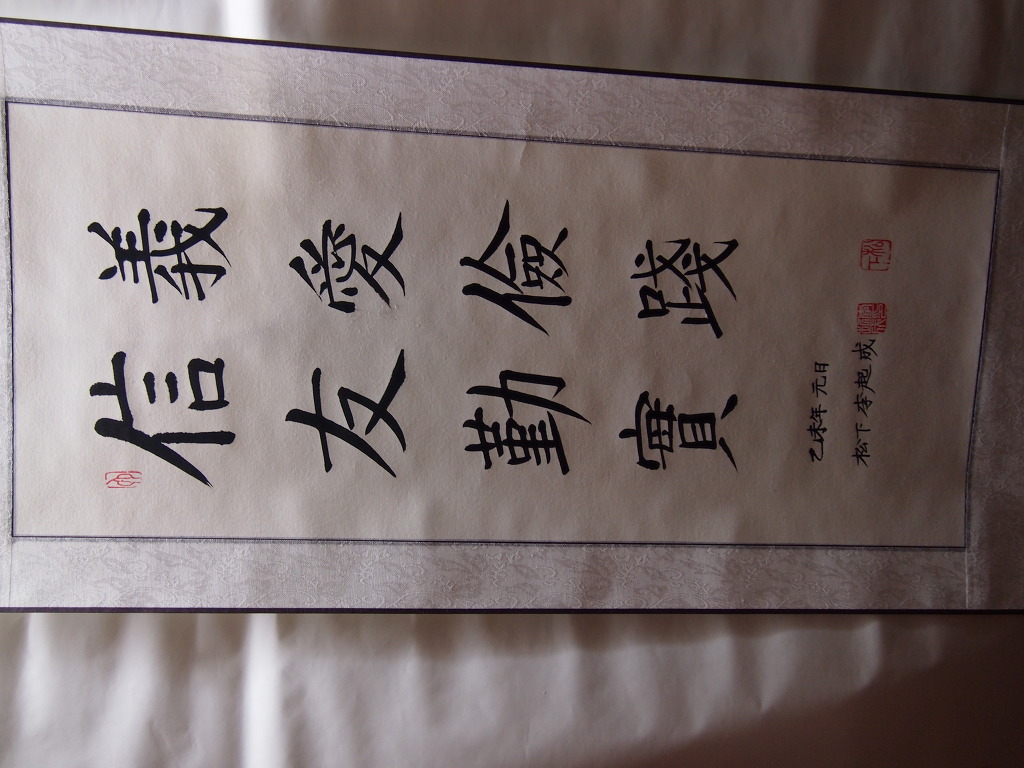 信義
友愛
勤儉
實踐
乙未年 元日
松下 李起成